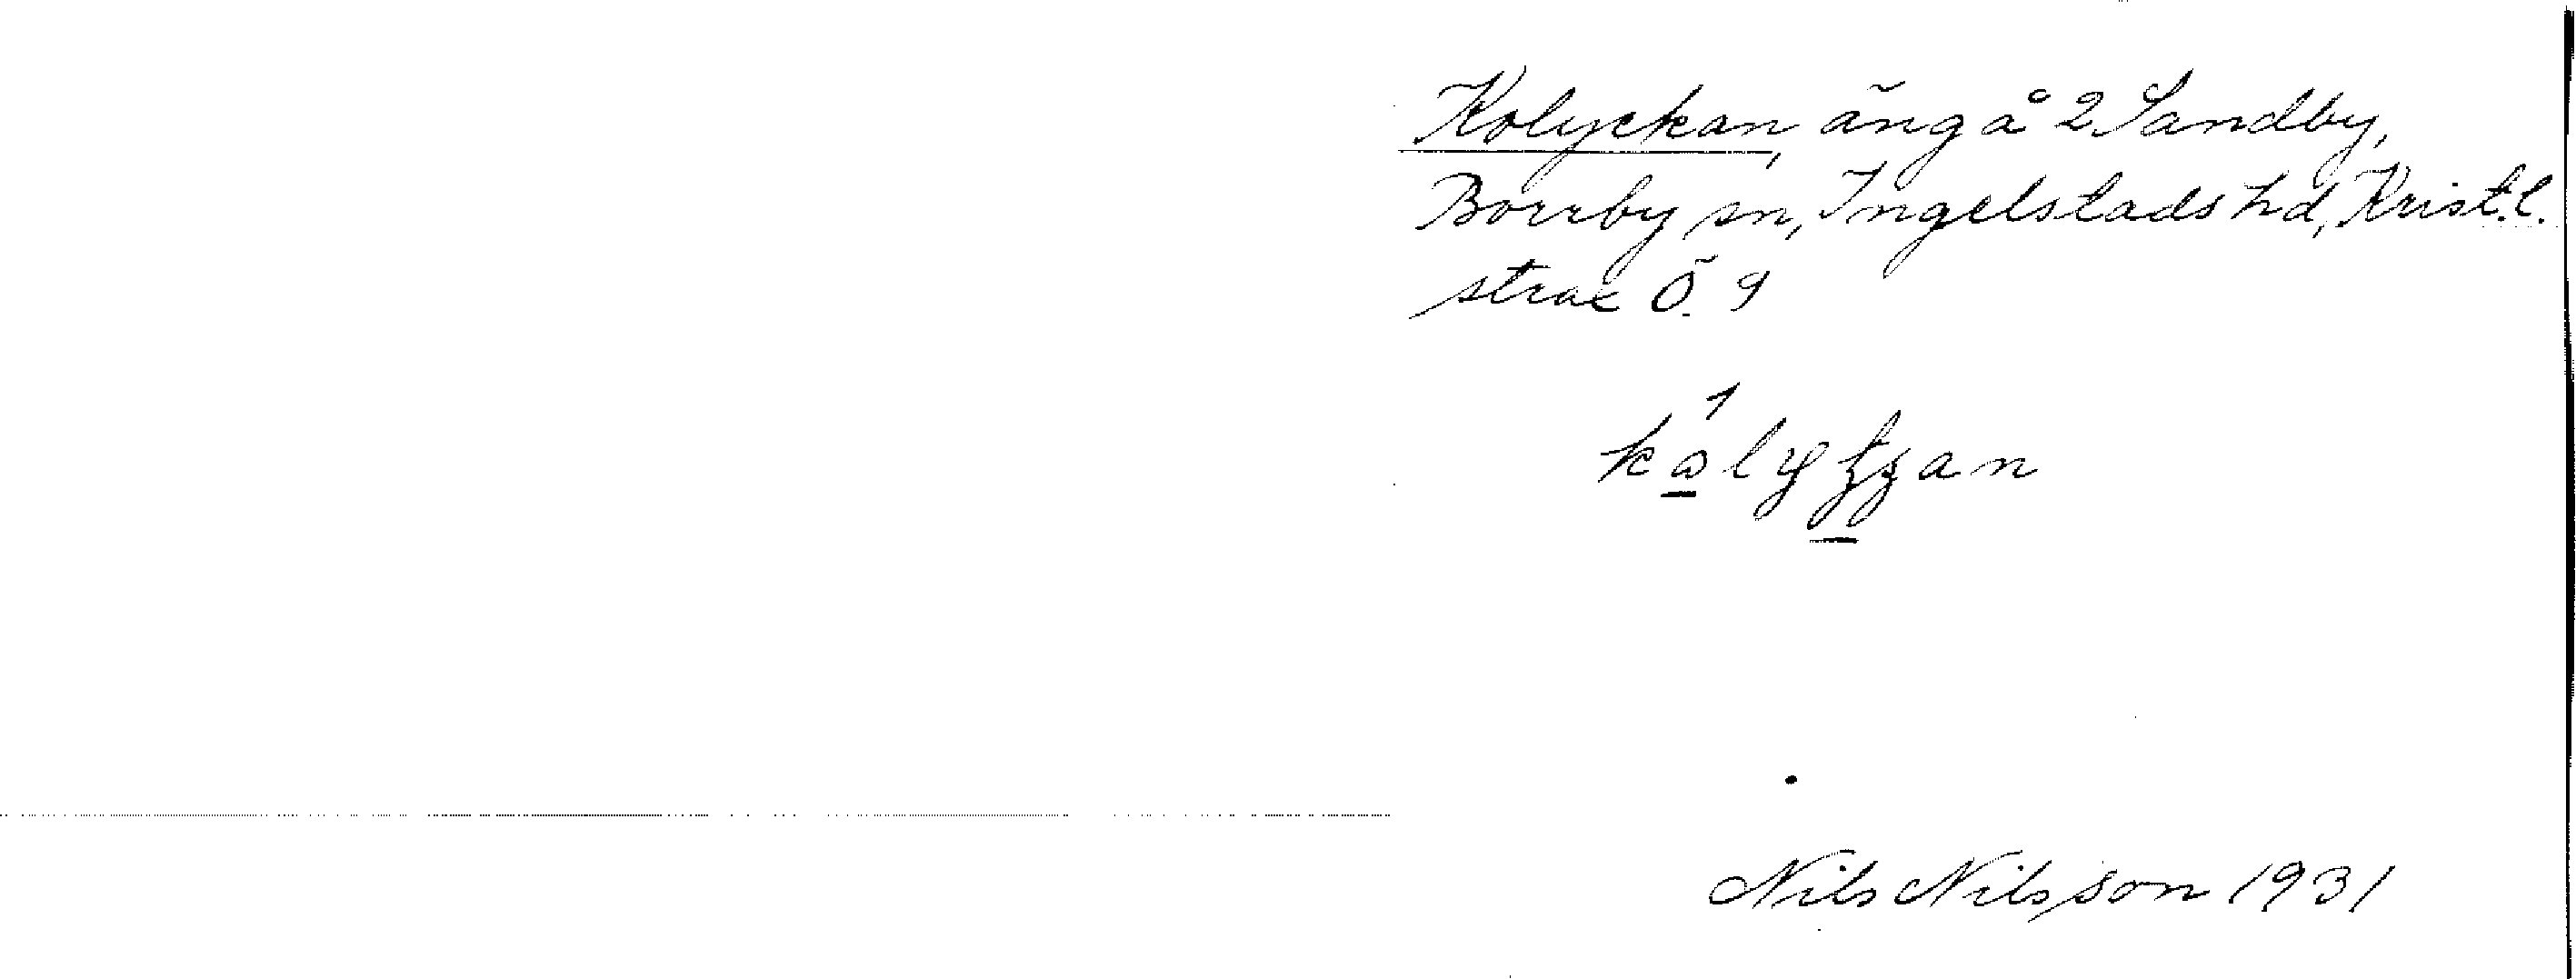 Kolyckan, äng å 2 Sandby,
Borrby sn, Ingelstads hd, Krist. l.
strax Ö. 9
Nils Nilsson 1931